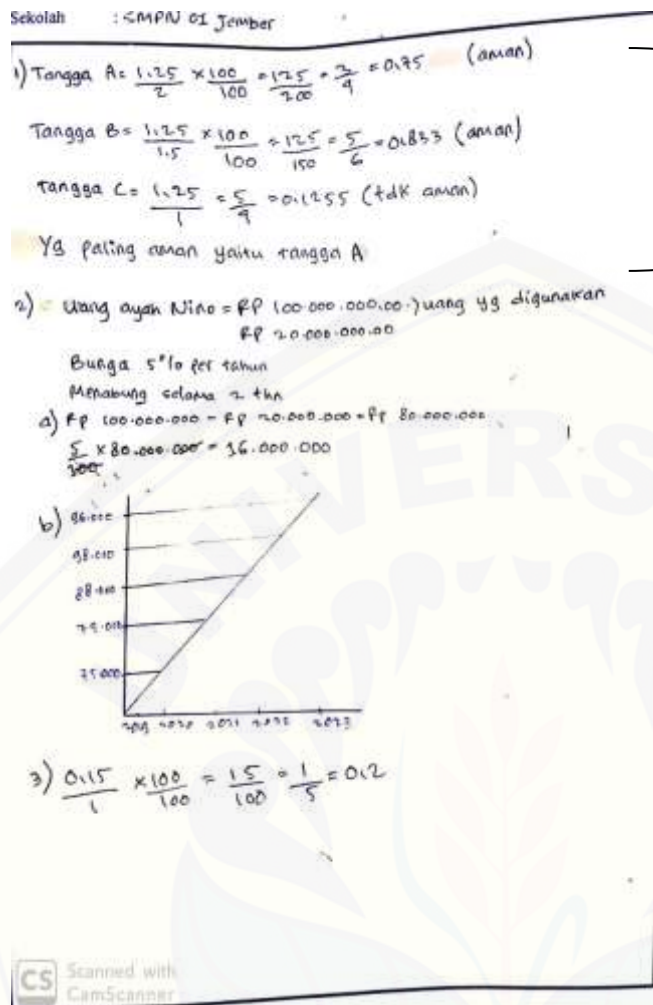 Sekolah : SMPN 01 Jember
1) Tangga A = 1.25/2 × 100/100 = 125/200 = 3/4 = 0,75 (aman)
Tangga B = 1.25/1.5 × 100/100 = 125/150 = 5/6 = 0,833 (aman)
Tangga C = 1.25/1 = 5/4 = 0,1255 (tdk aman)
Yg paling aman yaitu tangga A
2) Uang ayah Nino = RP 100.000.000,00.) uang yg digunakan
RP 20.000.000.00
Bunga 5% per tahun
Menabung selama 2 thn
a) Rp 100.000.000 - Rp 20.000.000 = Rp 80.000.000
5/100 × 80.000.000 = 16.000.000
b) 96.000
98.000
88.000
79.000
75.000
2019 2020 2021 2022 2023
3) 0,15/1 × 100/100 = 15/100 = 1/5 = 0,2
UNIVERS
CS Scanned with
CamScanner